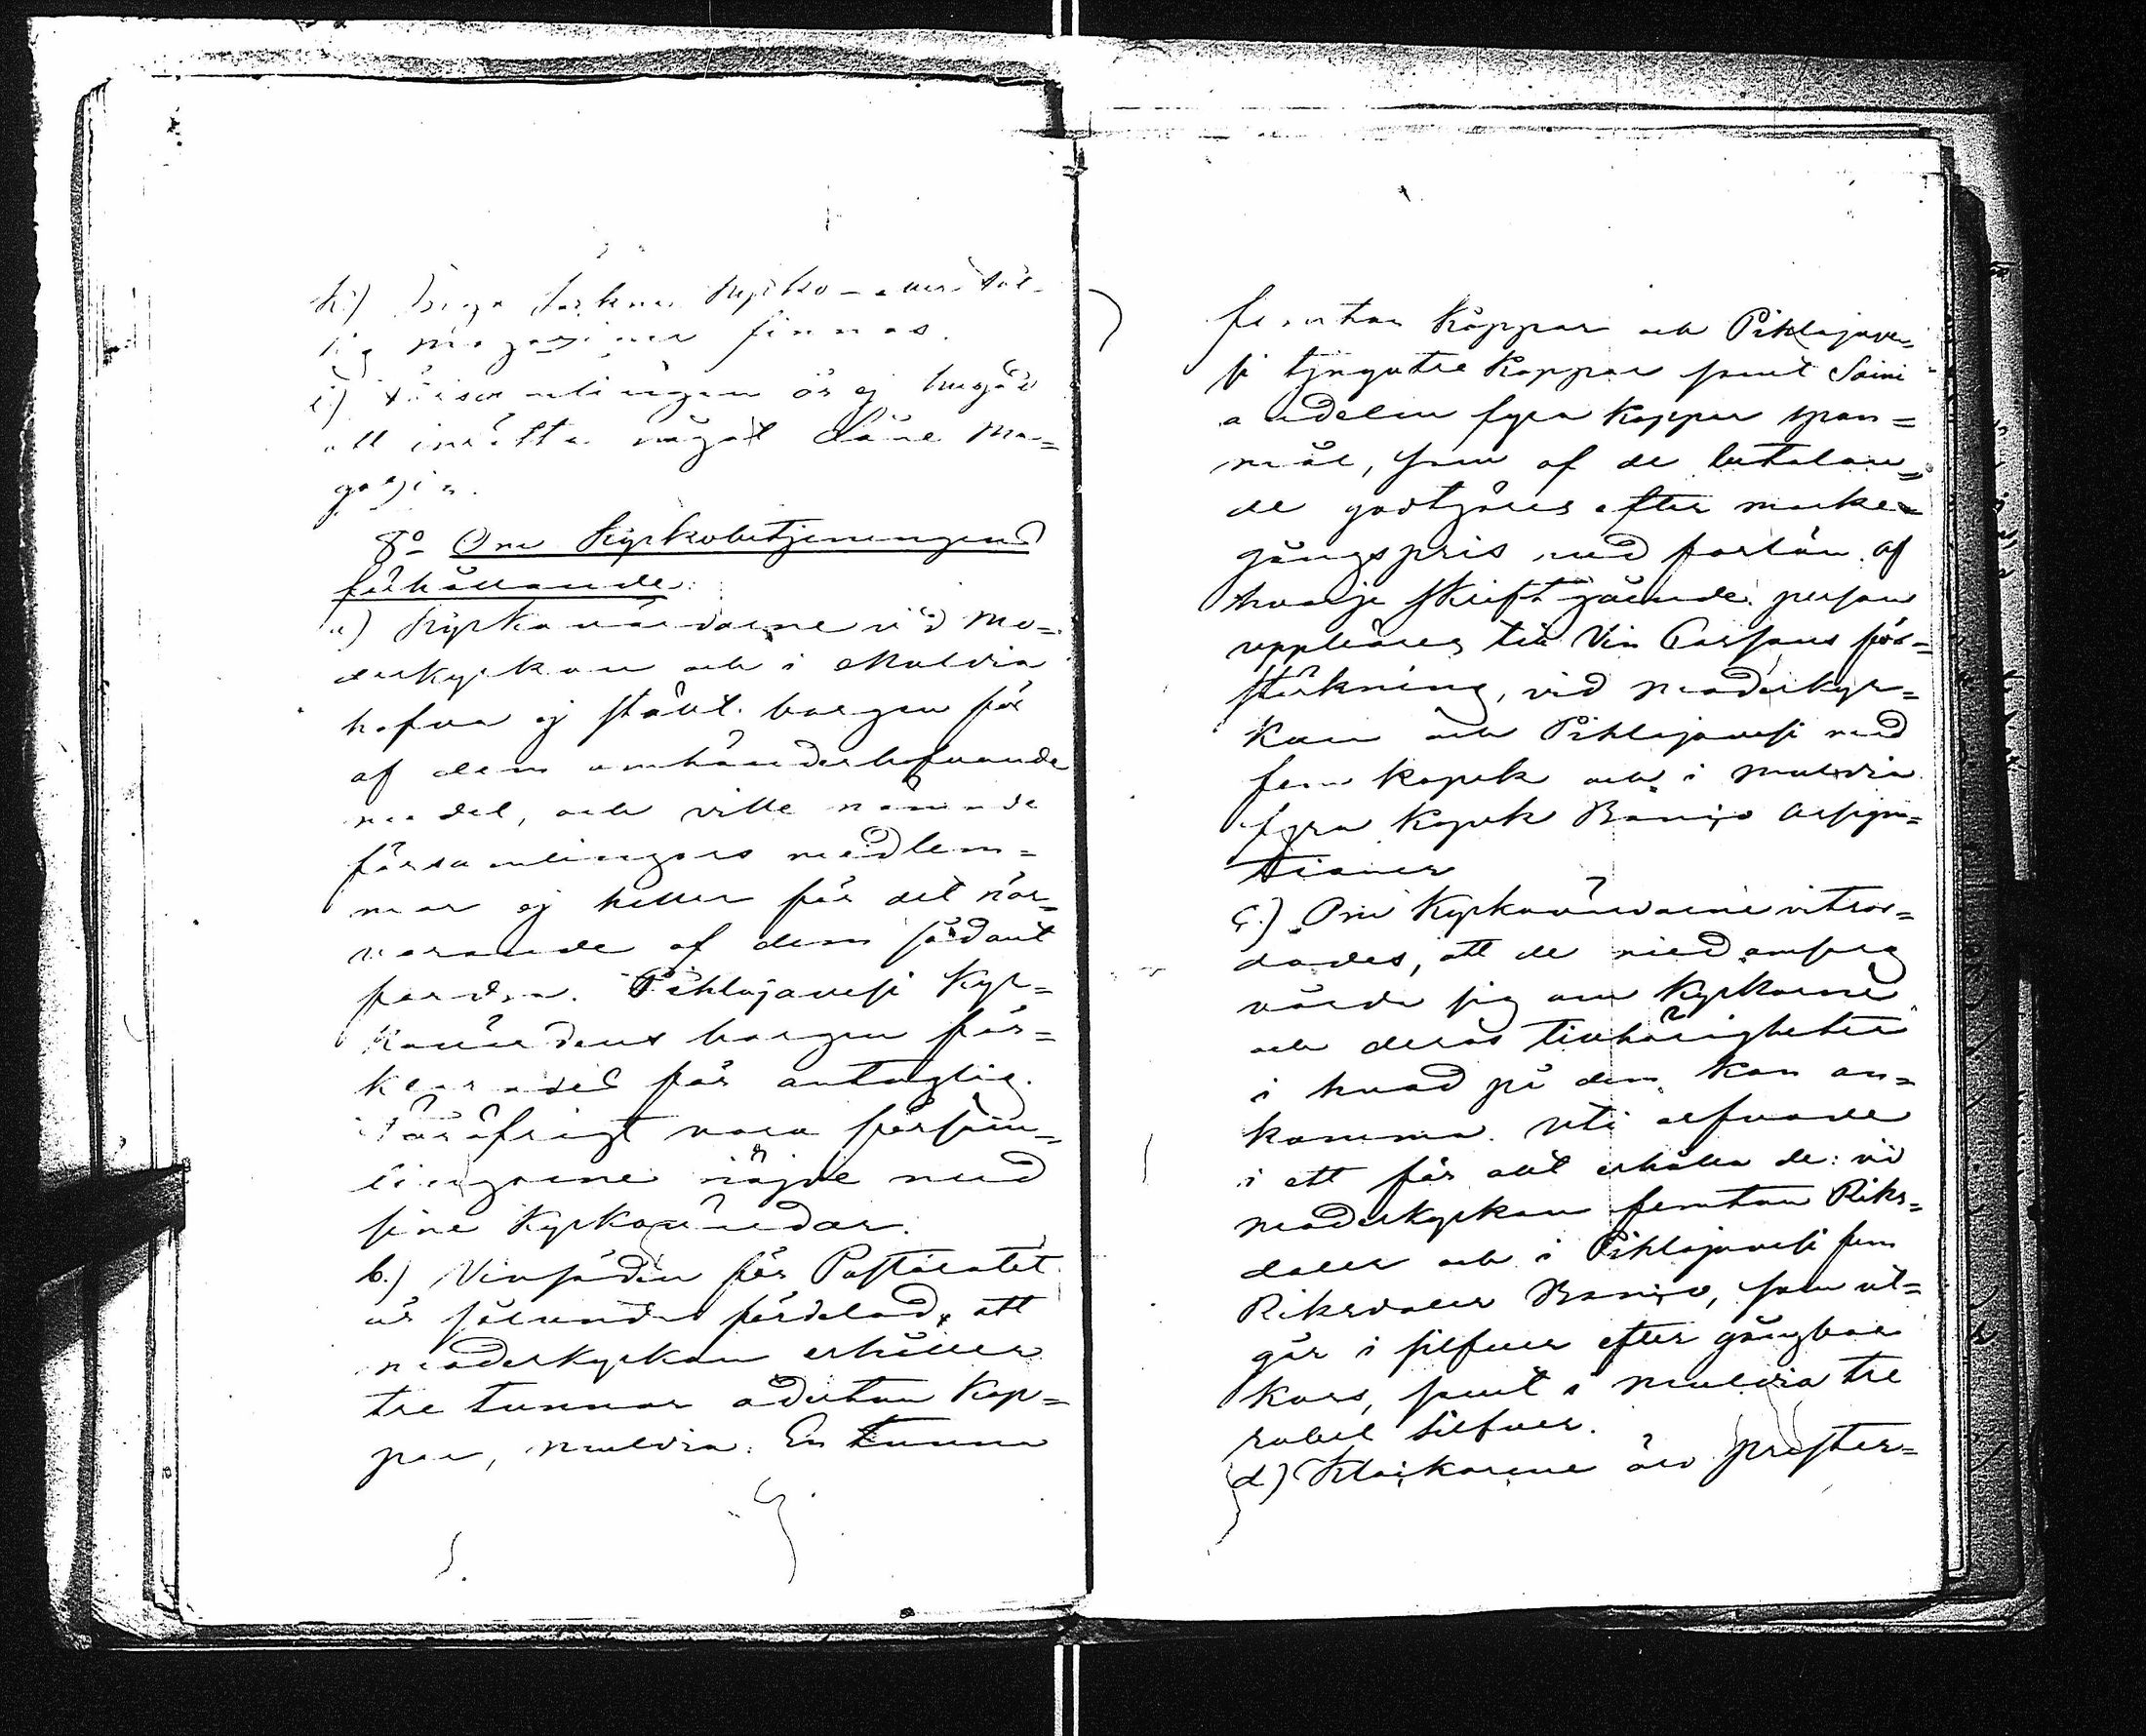 h.) Inga Sockne Kyrko- eller
magasiner finnas.
i) Församlingen är ej hugad
att inrätta något Låne Ma=
gazin.
8o Om Kyrkobetjeningens
förhållande:
a) Kyrkovärdarne vid Mo=
derkyrkan och i Multia
hafva ej stält borgen för
af dem omhänderhafvande
medel, och ville nämnde
församlingars medlem=
mar ej heller för det när=
varande af dem sådant
fordra. Pihlajavesi Kyr=
kovärdens borgen för=
klarades för antaglig.
För öfrigt voro församm=
lingarne nöjde med
sine Kyrkovärdar.
b.) Vinsäden för Pastoratet
är sålunda fördelad, att
moderkyrkan erhåller
tre tunnor aderton Kap=
par, Multia: En tunna
femton Kappar och Pihlajave=
si tjugutre Kappar samt Saini
andelen fyra Kappar span=
mål, som af de betalan=
de godtgöres efter marke=
gångspris, med förlän af
hvarje skriftgående person
uppbäres till Vin Cassans för=
stärkning, vid moderkyr=
kan och Pihlajavesi med
fem kopek och i Multia
fyra kopek Banco Assigna=
tioner
c.) Om Kyrkovärdarne vitsor=
dades, att de med omsorg
vårda sig om Kyrkorne
och deras tillhörigheter
i hvad på dem kan an=
komma. Uti arfvode
i ett för allt erhålla de: vid
moderkyrkan femton Riks=
daler och i Pihlajavesi fem
Riksdaler Banco, som ut=
går i silfver efter gångbar
kurs, samt i Multia tre
rubel silfver.
d) Klockarene äro prester=